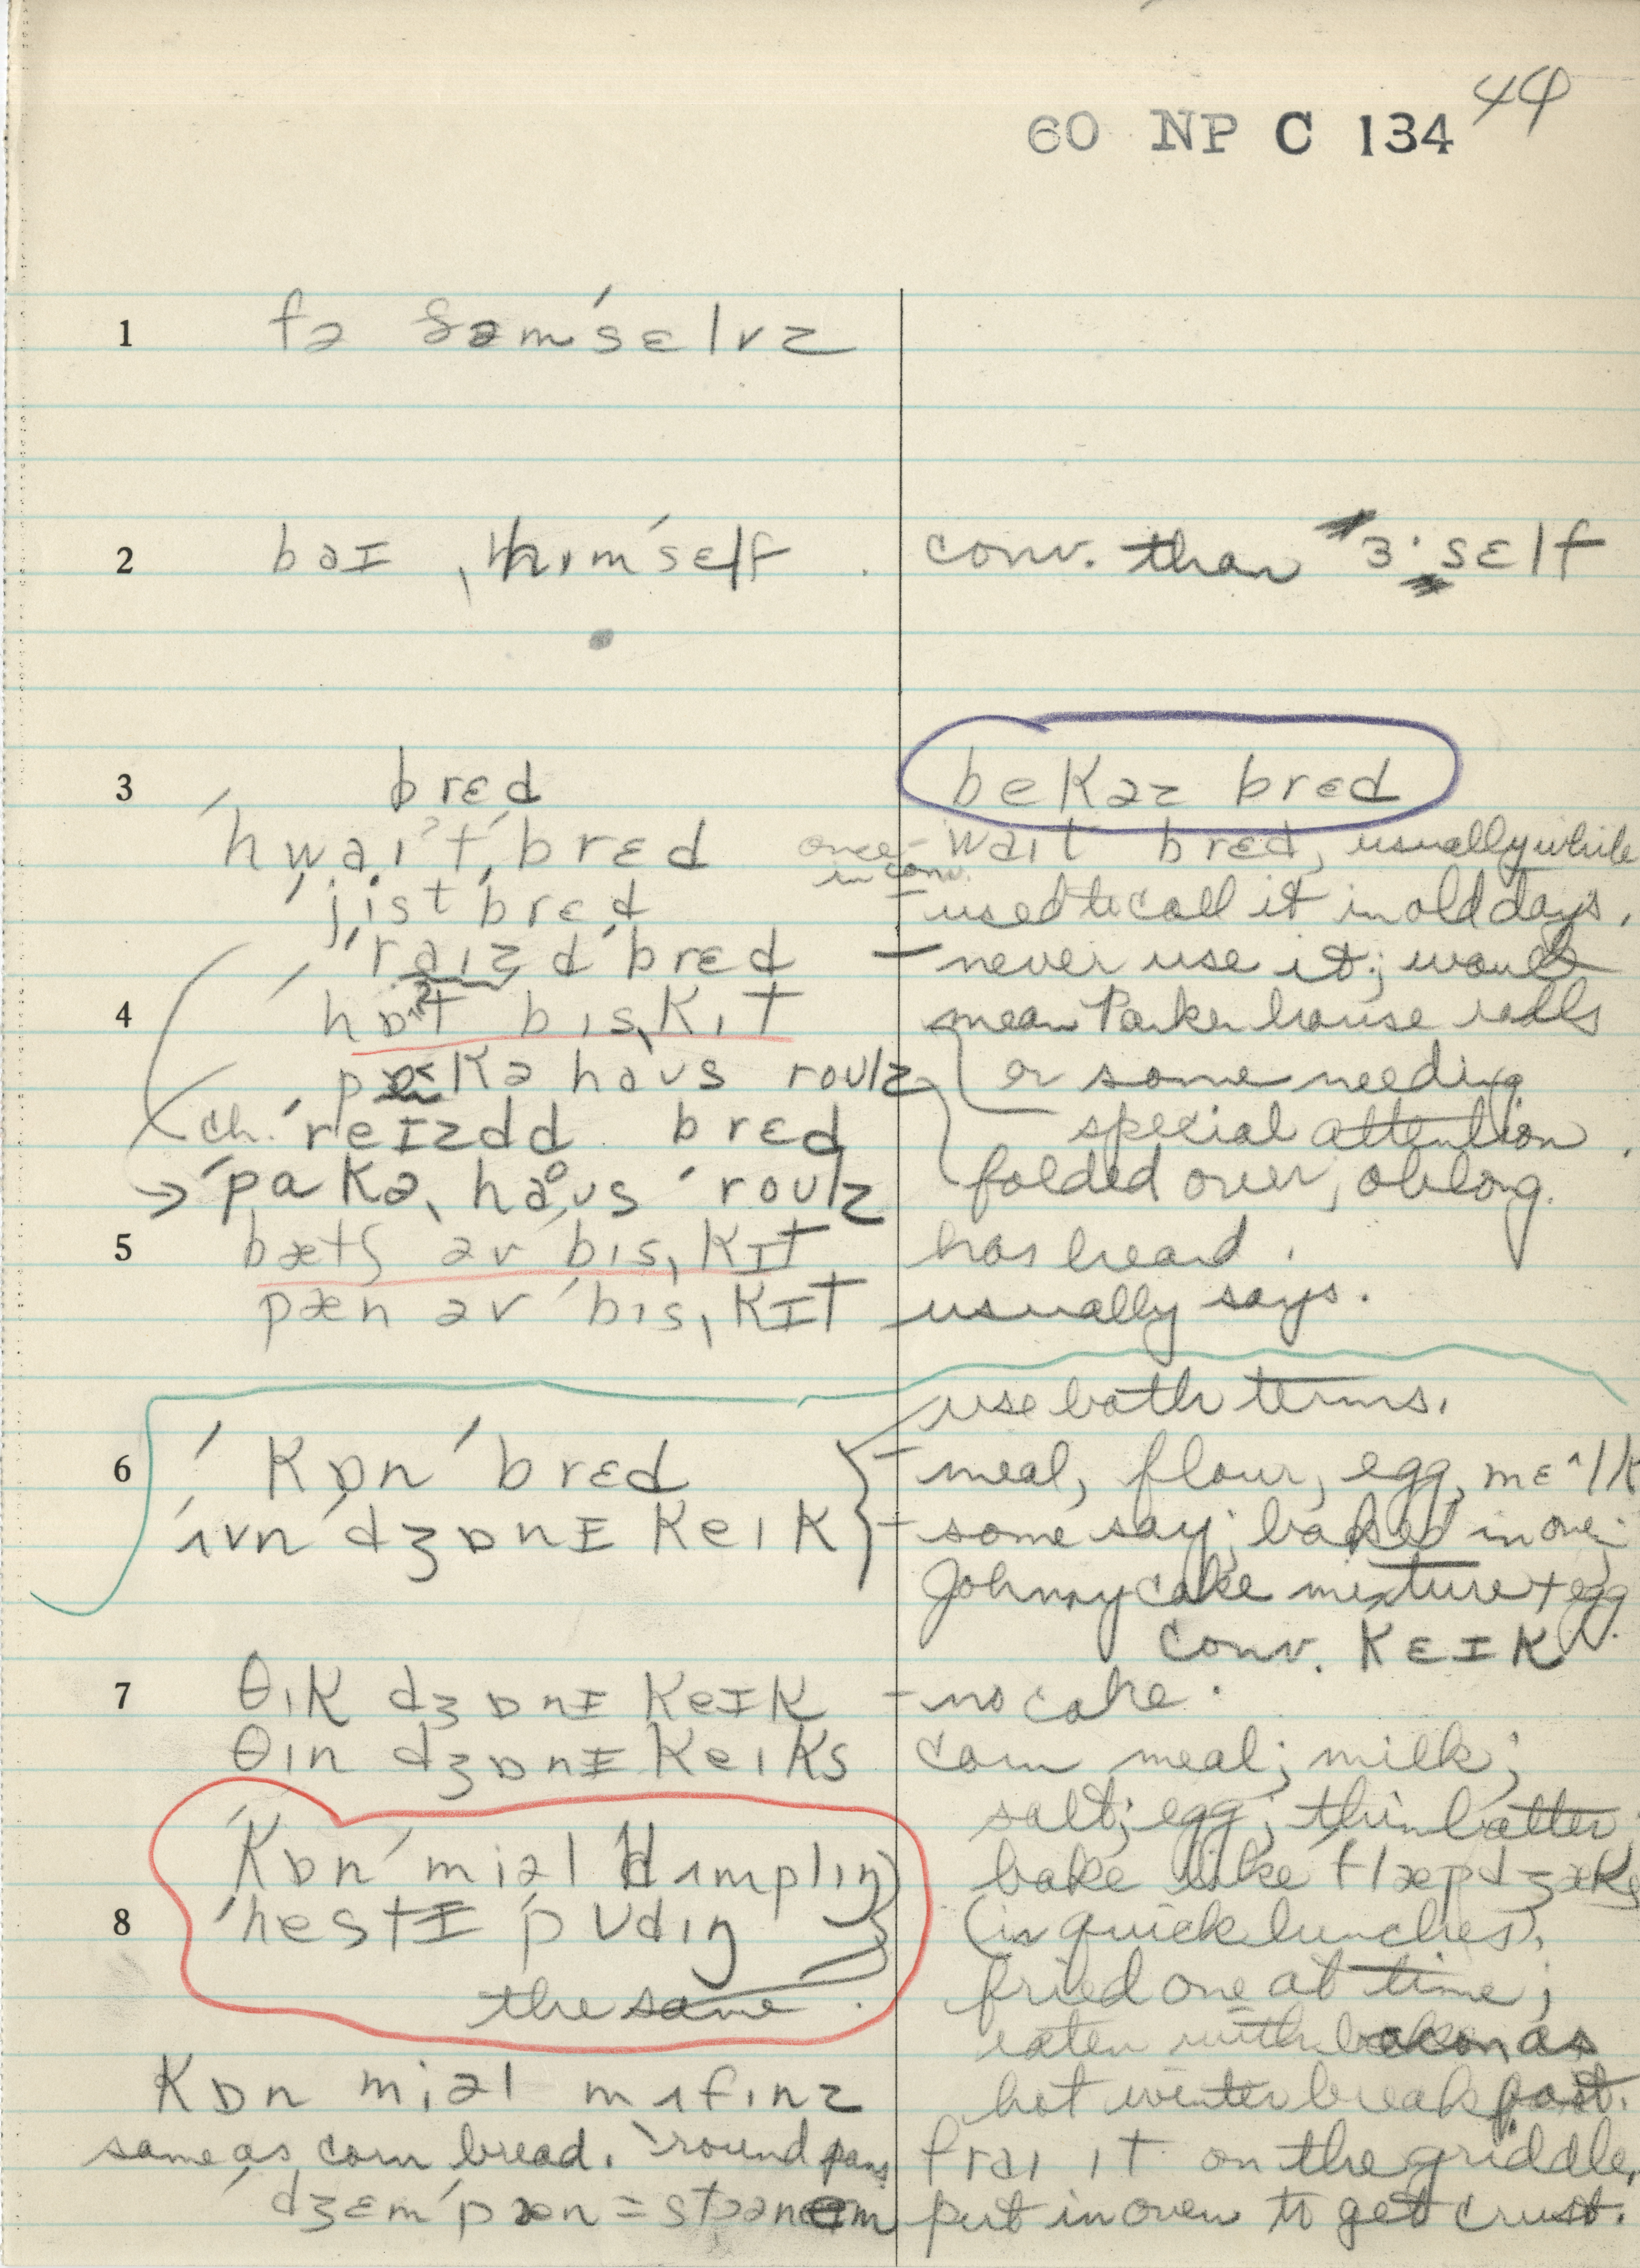 60 NP C 134 44
1 fə ðəmˈsɛlvz
2 baɪ ˌhɪmˈsɛlf conv. than ɜ·sɛlf
3 brɛd bekəz brɛd
ˈhwaɪˀtˌbrɛd once in conv. - waɪt brɛd, usually while
ˈjistˈbrɛd - used to call it in old days.
ˈraɪzdˈbrɛd - never use it; would
4 ˈhɒˀt bɪsˌkɪt mean Parker house rolls
kə haʊs roulz or some needing
ch. ˈreɪzdd brɛd special attention.
→ ˈpakəˌhaʊs ˈroulz folded over, oblong.
5 bætʃ əv ˈbɪsˌkɪt has heard.
pæn əv ˈbɪsˌkɪt usually says.
use both terms.
6 ˈkɒnˈbrɛd - meal, flour, egg, mɛ^lk
ˈʌvnˈdʒɒnɪ keɪk - some say; baked in
Johnny cake mixture + egg
conv. kɛɪk
7 θɪk dʒɒnɪ keɪk - no cake.
θɪn dʒɒnɪ keɪks corn meal; milk;
salt; egg; thin batter;
ˈkɒnˈmiəl dʌmplɪŋ bake like flæpdʒæks
8 ˈhestɪ pʊdɪŋ (in quick lunches),
the same. fried one at time;
eaten with bacon as
kɒn miəl mʌfɪnz hot winter breakfast.
same as corn bread. 'round pans fraɪ ɪt on the griddle,
ˈdʒɛmˈpæn = put in oven to get crust.